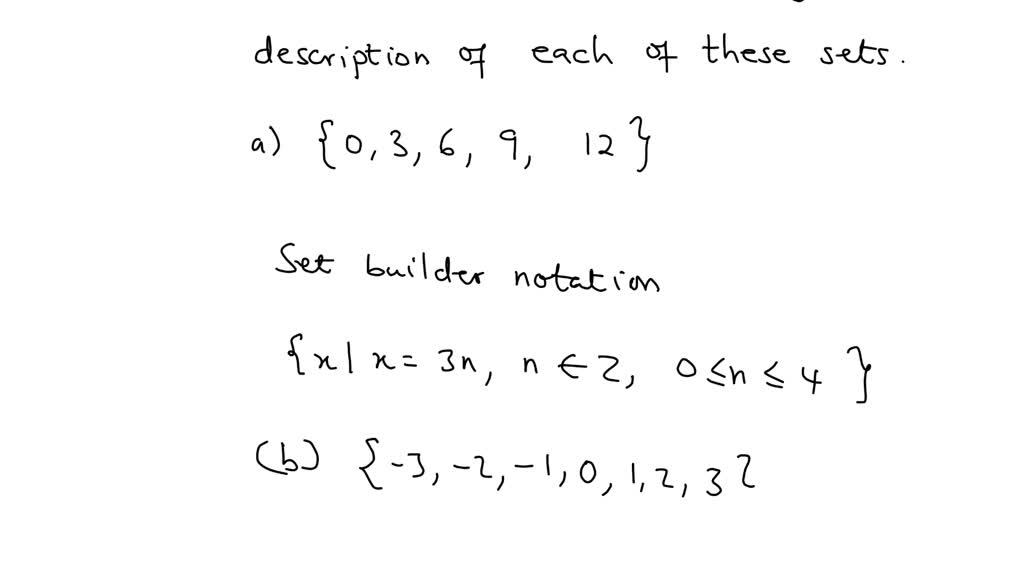 description of each of these sets.
a) {0, 3, 6, 9, 12}
Set builder notation
{x | x = 3n, n ∈ Z, 0 ≤ n ≤ 4 }
(b) {-3, -2, -1, 0, 1, 2, 3}